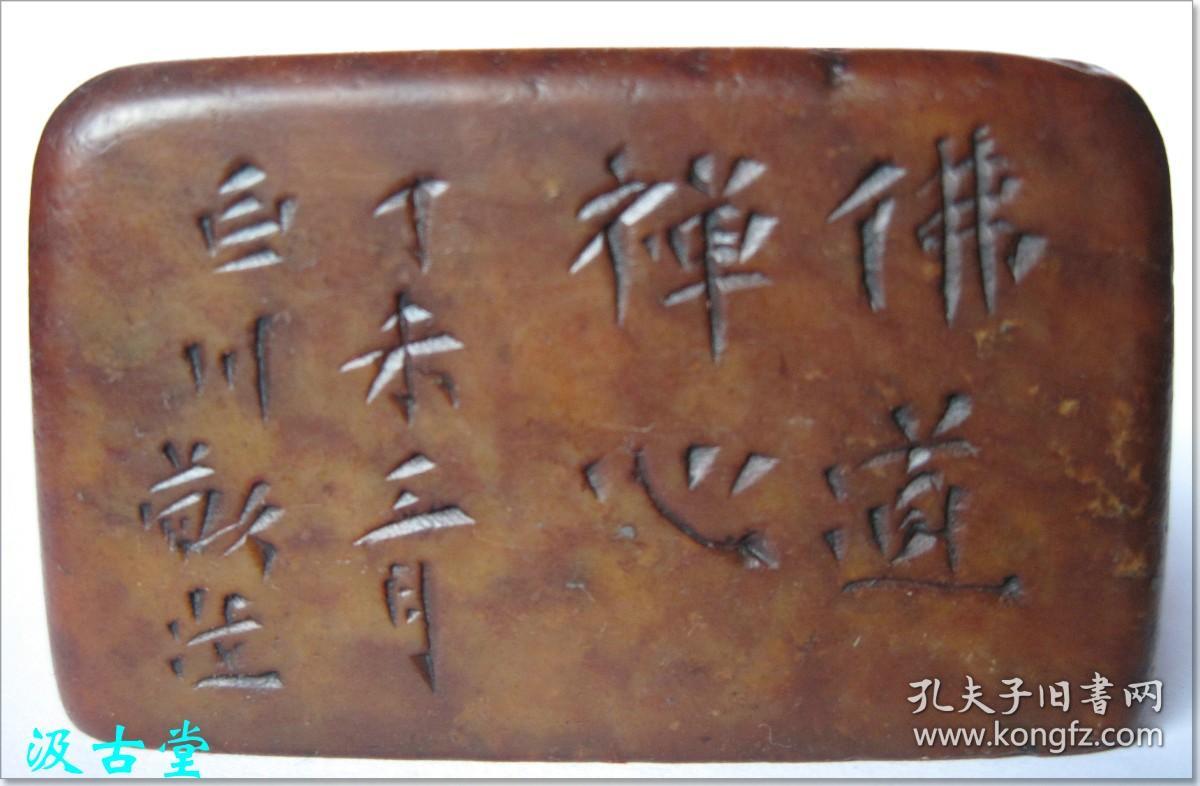 佛道
禅心
丁未三月
白川
汲古堂
孔夫子旧書网
www.kongfz.com